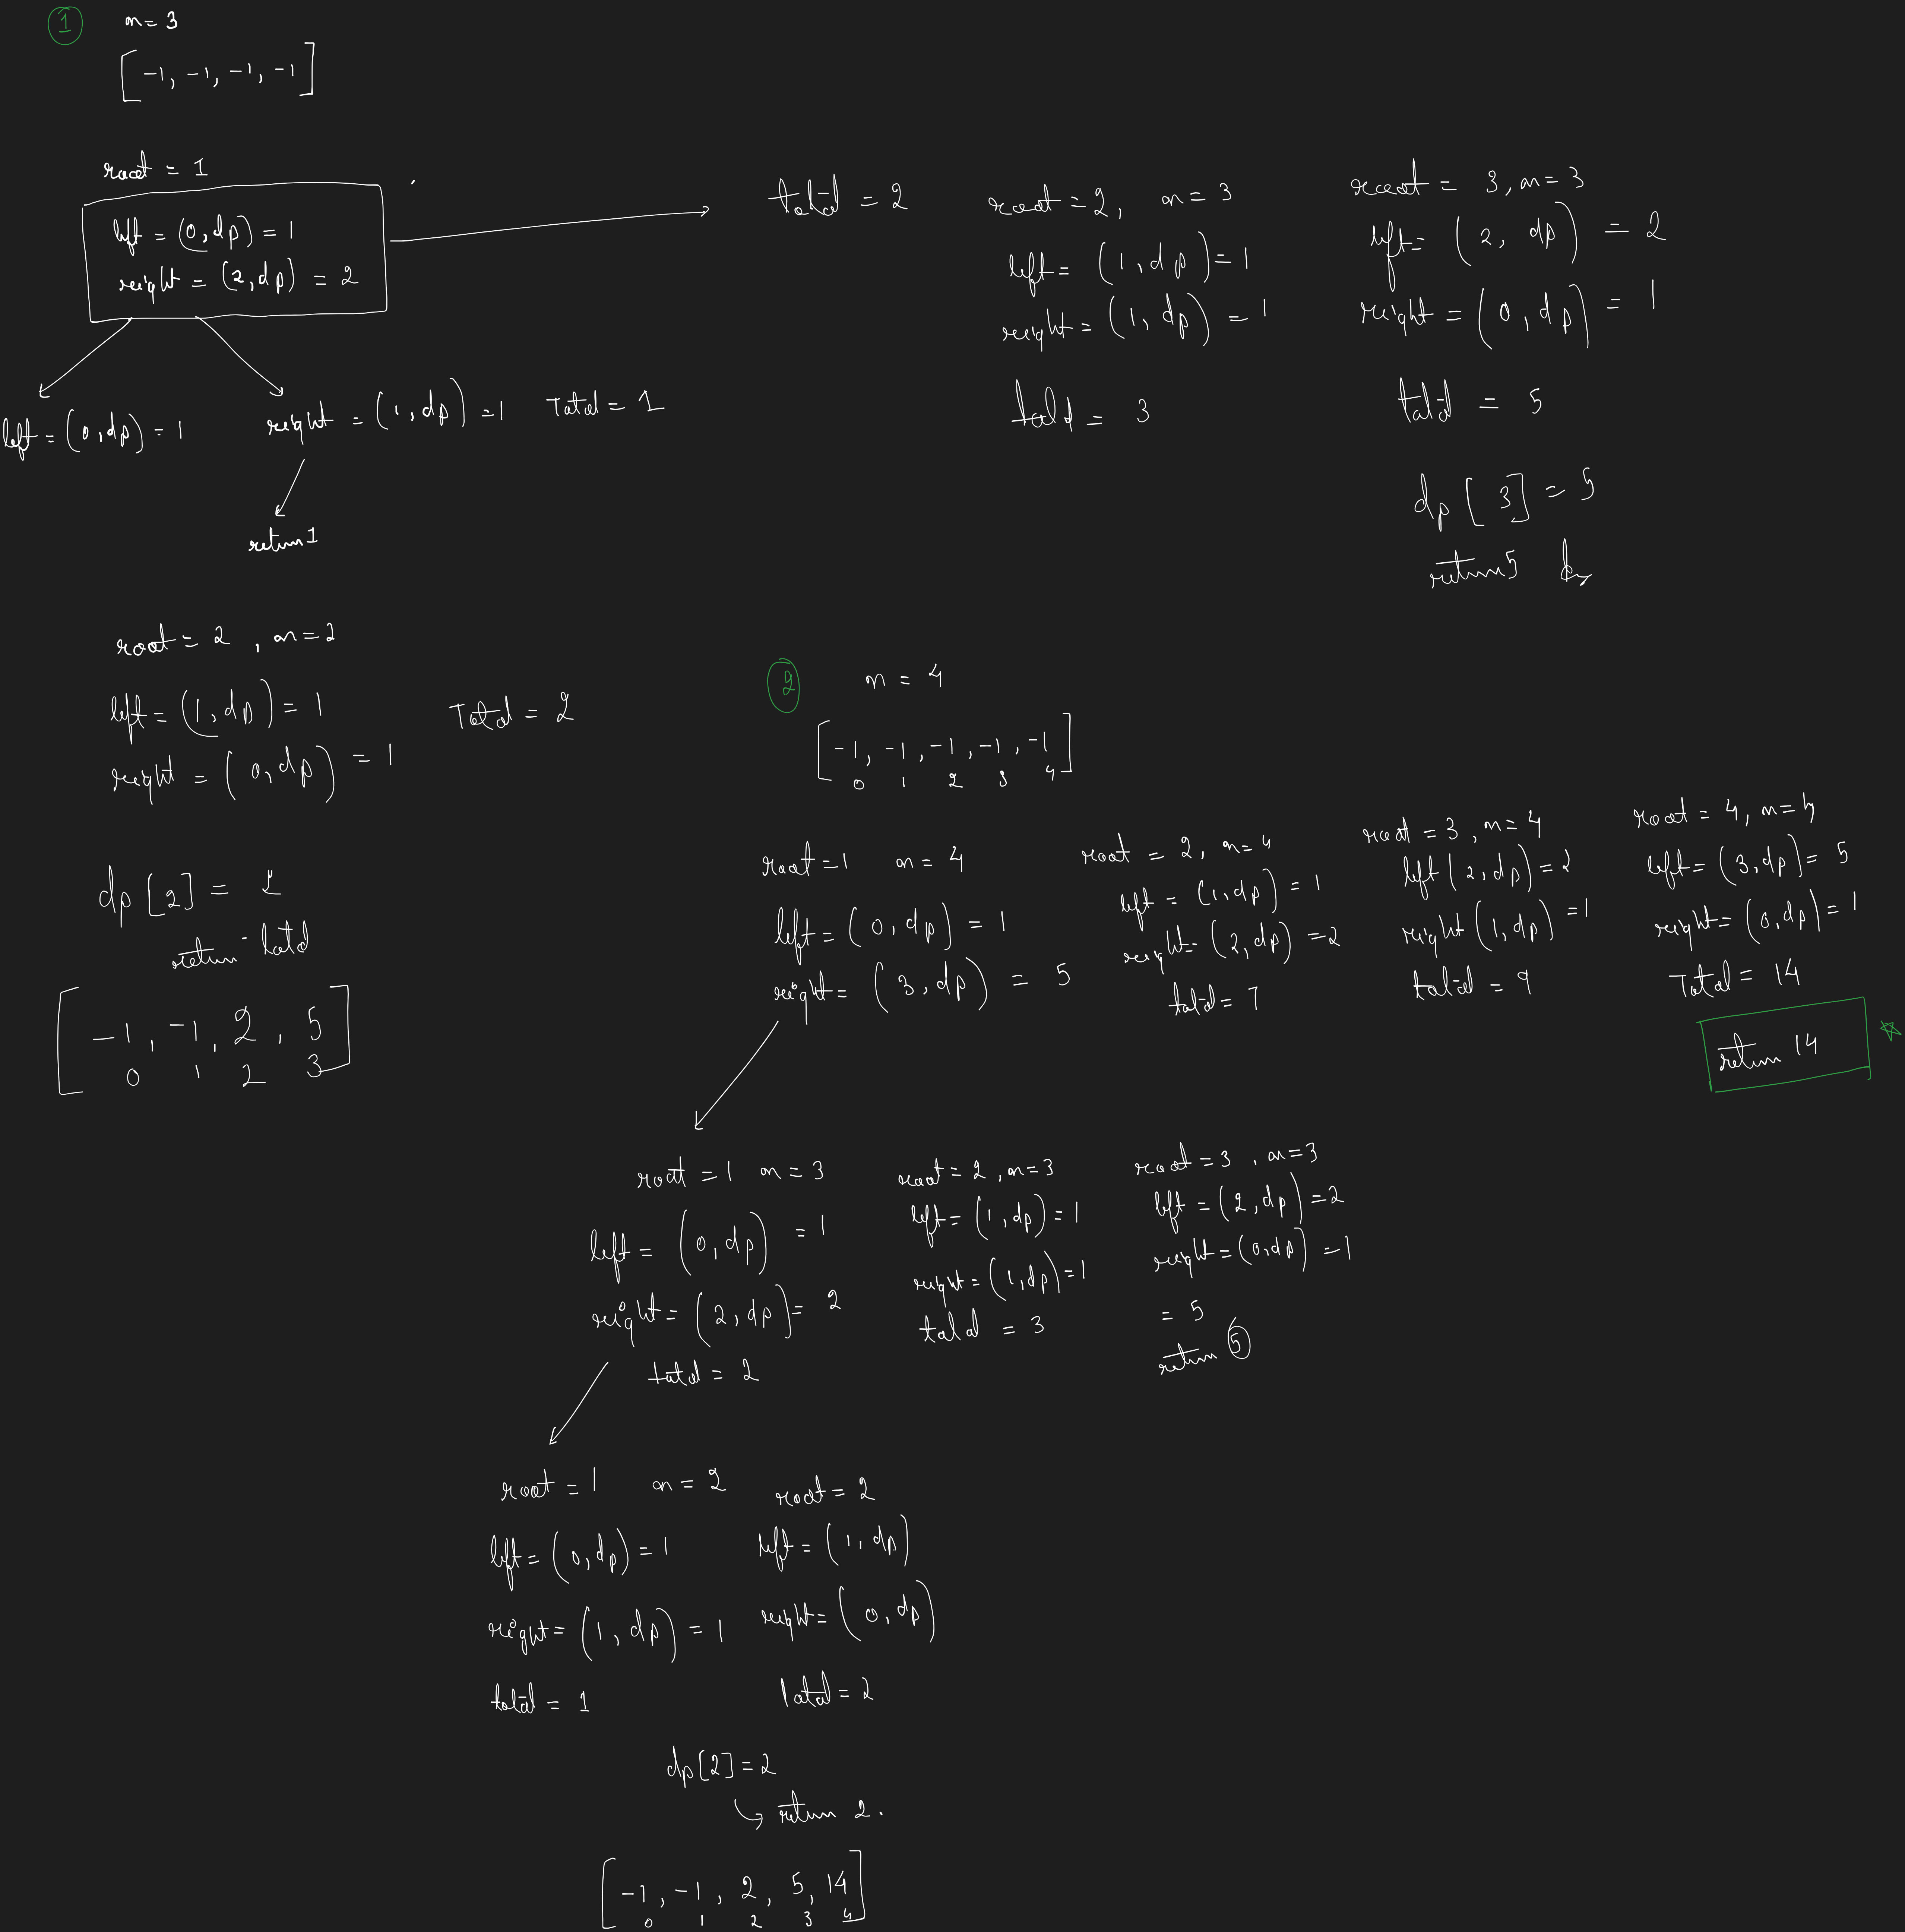 1
n = 3
[-1, -1, -1, -1]
root = 1
left = (0, dp) = 1
right = (2, dp) = 2
left = (0, dp) = 1
right = (1, dp) = 1
Total = 1
return 1
total = 2
root = 2, n = 3
left = (1, dp) = 1
right = (1, dp) = 1
total = 3
root = 3, n = 3
left = (2, dp) = 2
right = (0, dp) = 1
total = 5
dp [3] = 5
return 5
root = 2, n = 2
left = (1, dp) = 1
right = (0, dp) = 1
Total = 2
dp [2] = 2
return total
[-1, -1, 2, 5]
0 1 2 3
2
n = 4
[-1, -1, -1, -1, -1]
0 1 2 3 4
root = 1 n = 4
left = (0, dp) = 1
right = (3, dp) = 5
root = 2, n = 4
left = (1, dp) = 1
right = (2, dp) = 2
total = 7
root = 3, n = 4
left (2, dp) = 2
right (1, dp) = 1
total = 9
root = 4, n = 4
left = (3, dp) = 5
right = (0, dp) = 1
Total = 14
return 14
root = 1 n = 3
left = (0, dp) = 1
right = (2, dp) = 2
total = 2
root = 2, n = 3
left = (1, dp) = 1
right = (1, dp) = 1
total = 3
root = 3, n = 3
left = (2, dp) = 2
right = (0, dp) = 1
= 5
return 5
root = 1 n = 2
left = (0, dp) = 1
right = (1, dp) = 1
total = 1
root = 2
left = (1, dp)
right = (0, dp)
total = 2
dp [2] = 2
return 2.
[-1, -1, 2, 5, 14]
0 1 2 3 4